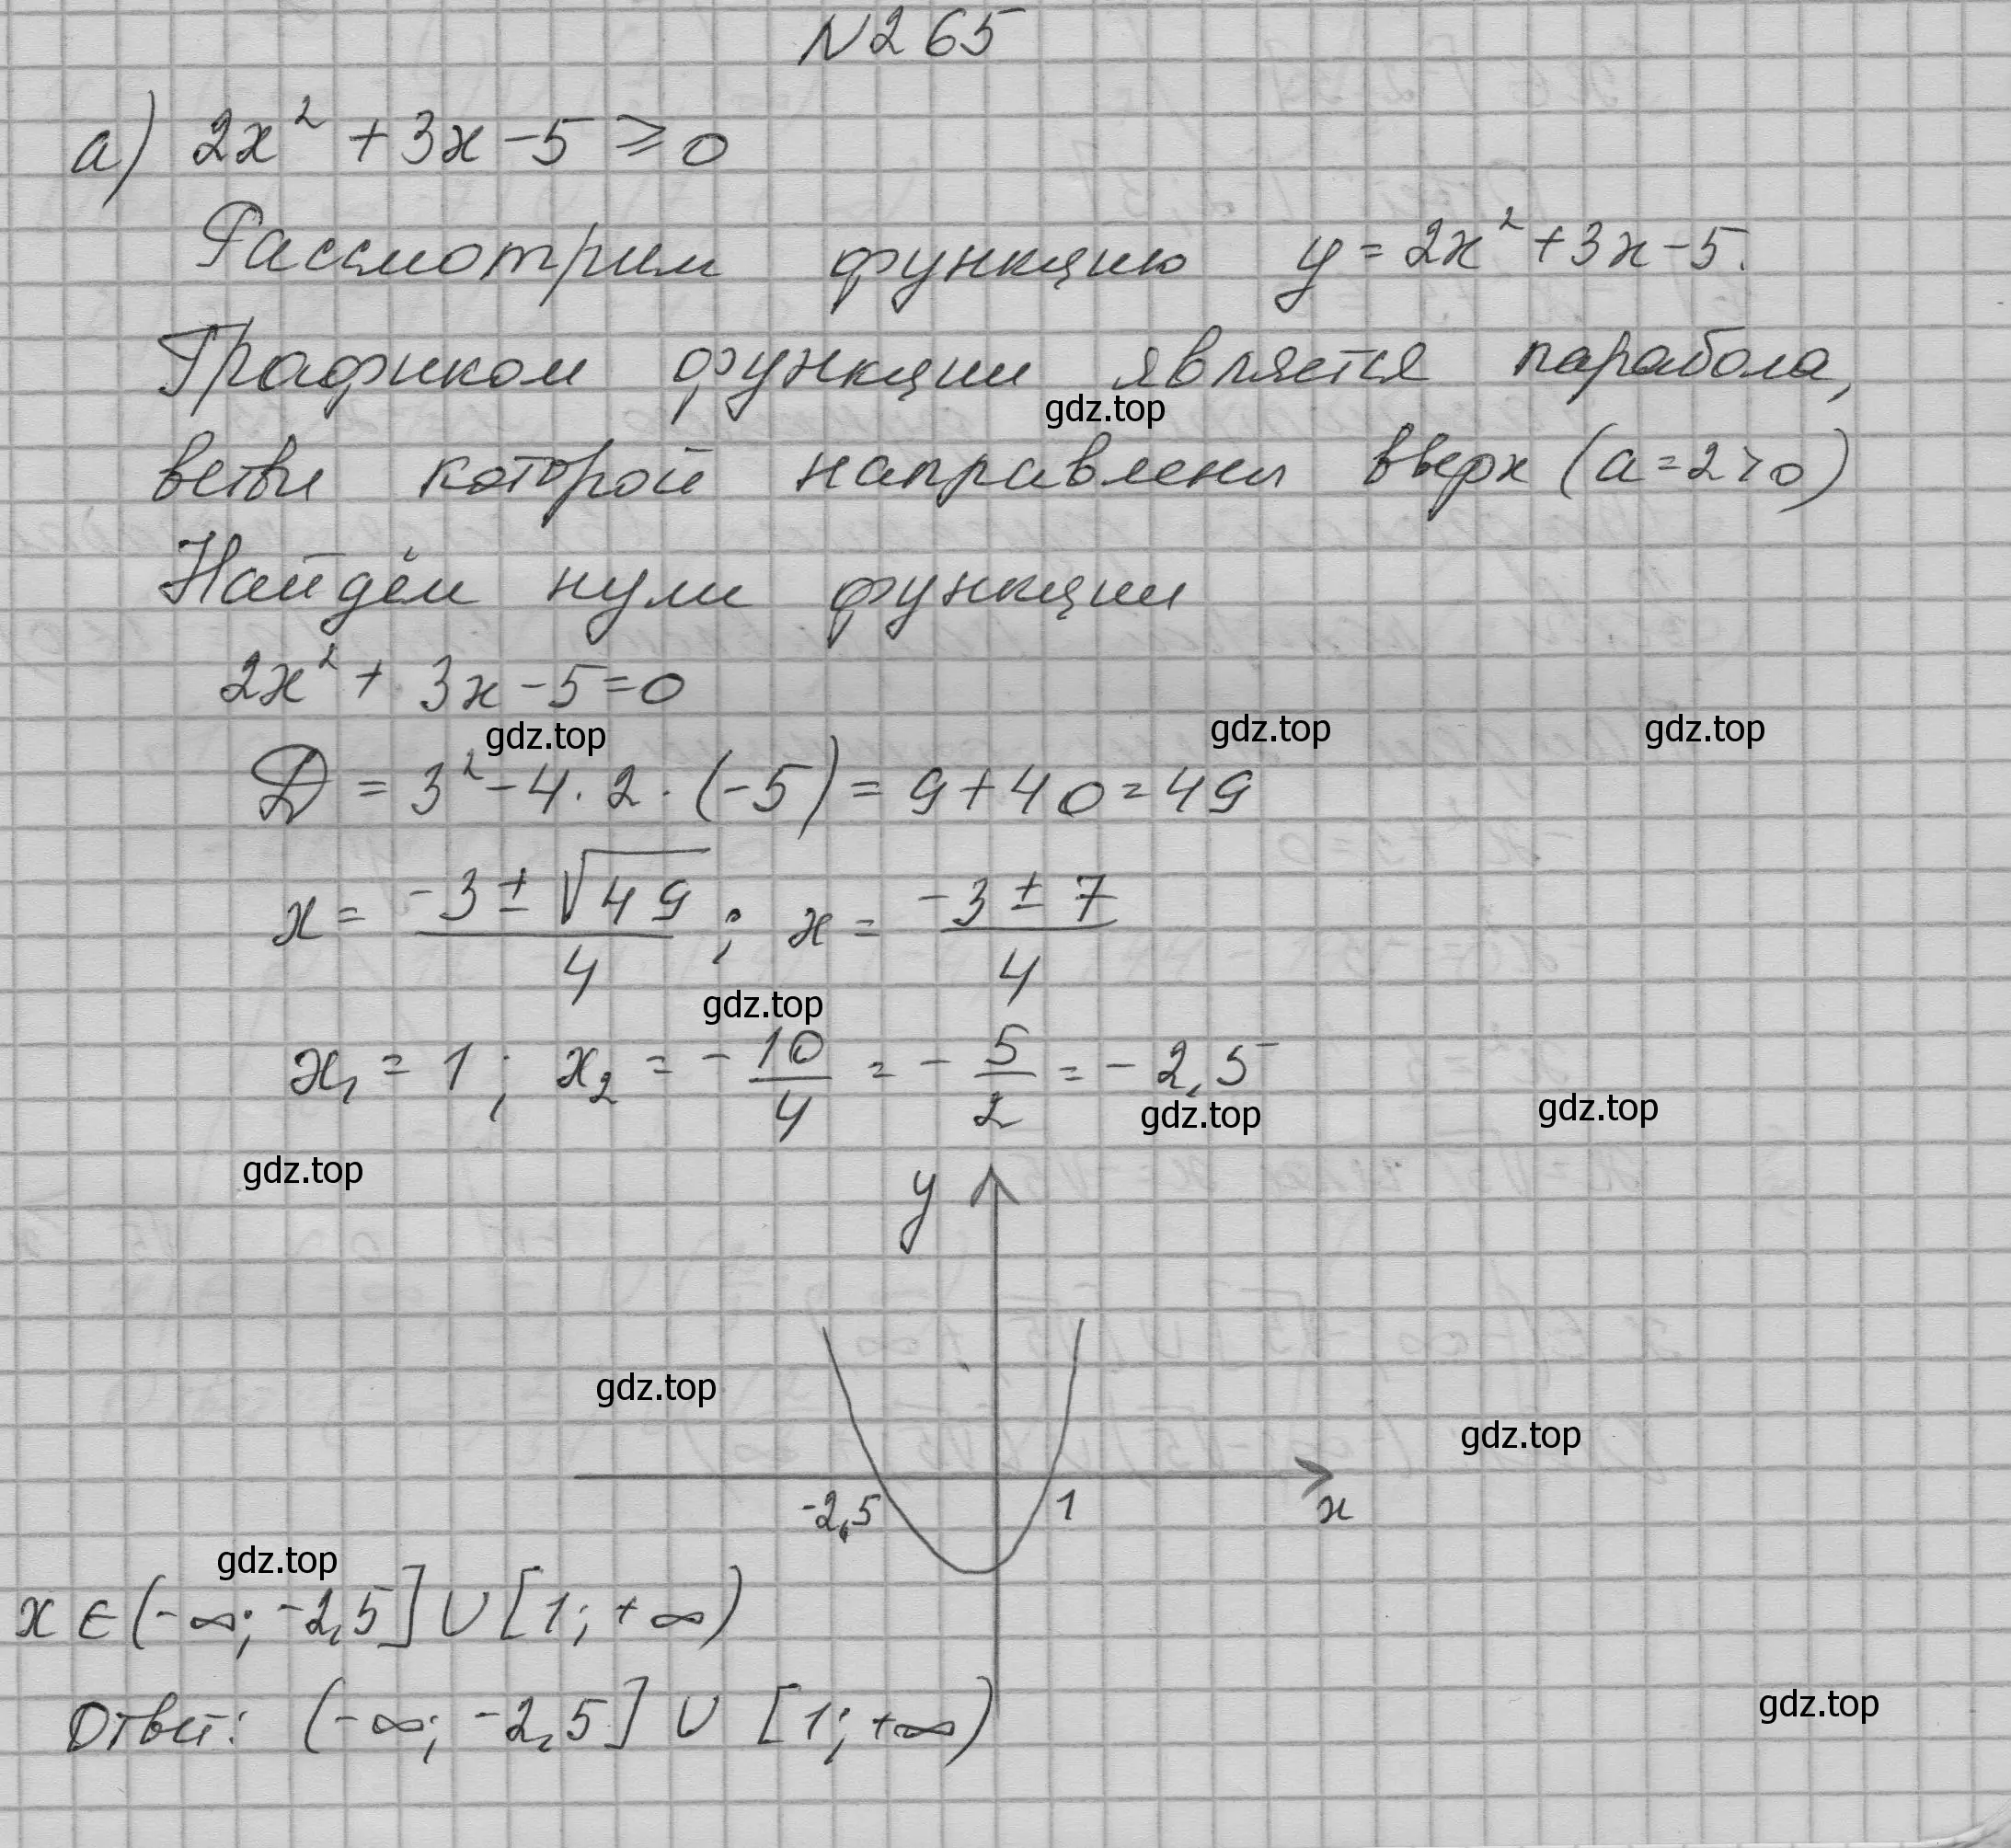 N265
а) 2x² + 3x - 5 ⩾ 0
Рассмотрим функцию y = 2x² + 3x - 5.
Графиком функции является парабола,
gdz.top
ветви которой направлены вверх (a = 2 > 0)
Найдём нули функции
2x² + 3x - 5 = 0
gdz.top gdz.top gdz.top
D = 3² - 4 · 2 · (-5) = 9 + 40 = 49
x = (-3 ± √49)/4 ; x = (-3 ± 7)/4
gdz.top
x₁ = 1 ; x₂ = - 10/4 = - 5/2 = - 2,5
gdz.top gdz.top
gdz.top
y
gdz.top
gdz.top
-2,5 1 x
gdz.top
x ∈ (-∞; -2,5] ∪ [1; +∞)
gdz.top
Ответ: (-∞; -2,5] ∪ [1; +∞)